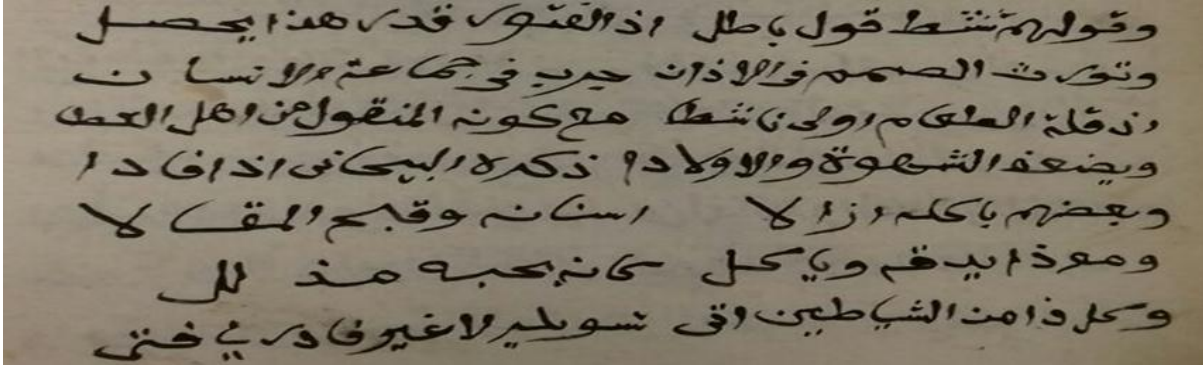 وقولهم تنشط قول باطل اذ الفتور قدر هذا يحصل
وتورث الصمم في الاذان جرب في جماعة الانسان
اذ قلة الطعام اولى ناشطا مع كونه المنقول من اهل العطا
ويضعف الشهوة والاولادا ذكره البيحاني اذ افادا
وبعضهم باكله ازالا اسنانه وقبح المقالا
وهو ذا يدقه وياكل كانه بحبه مذلل
وكل ذا من الشياطين اتى تسويله لا غير فادر يا فتى